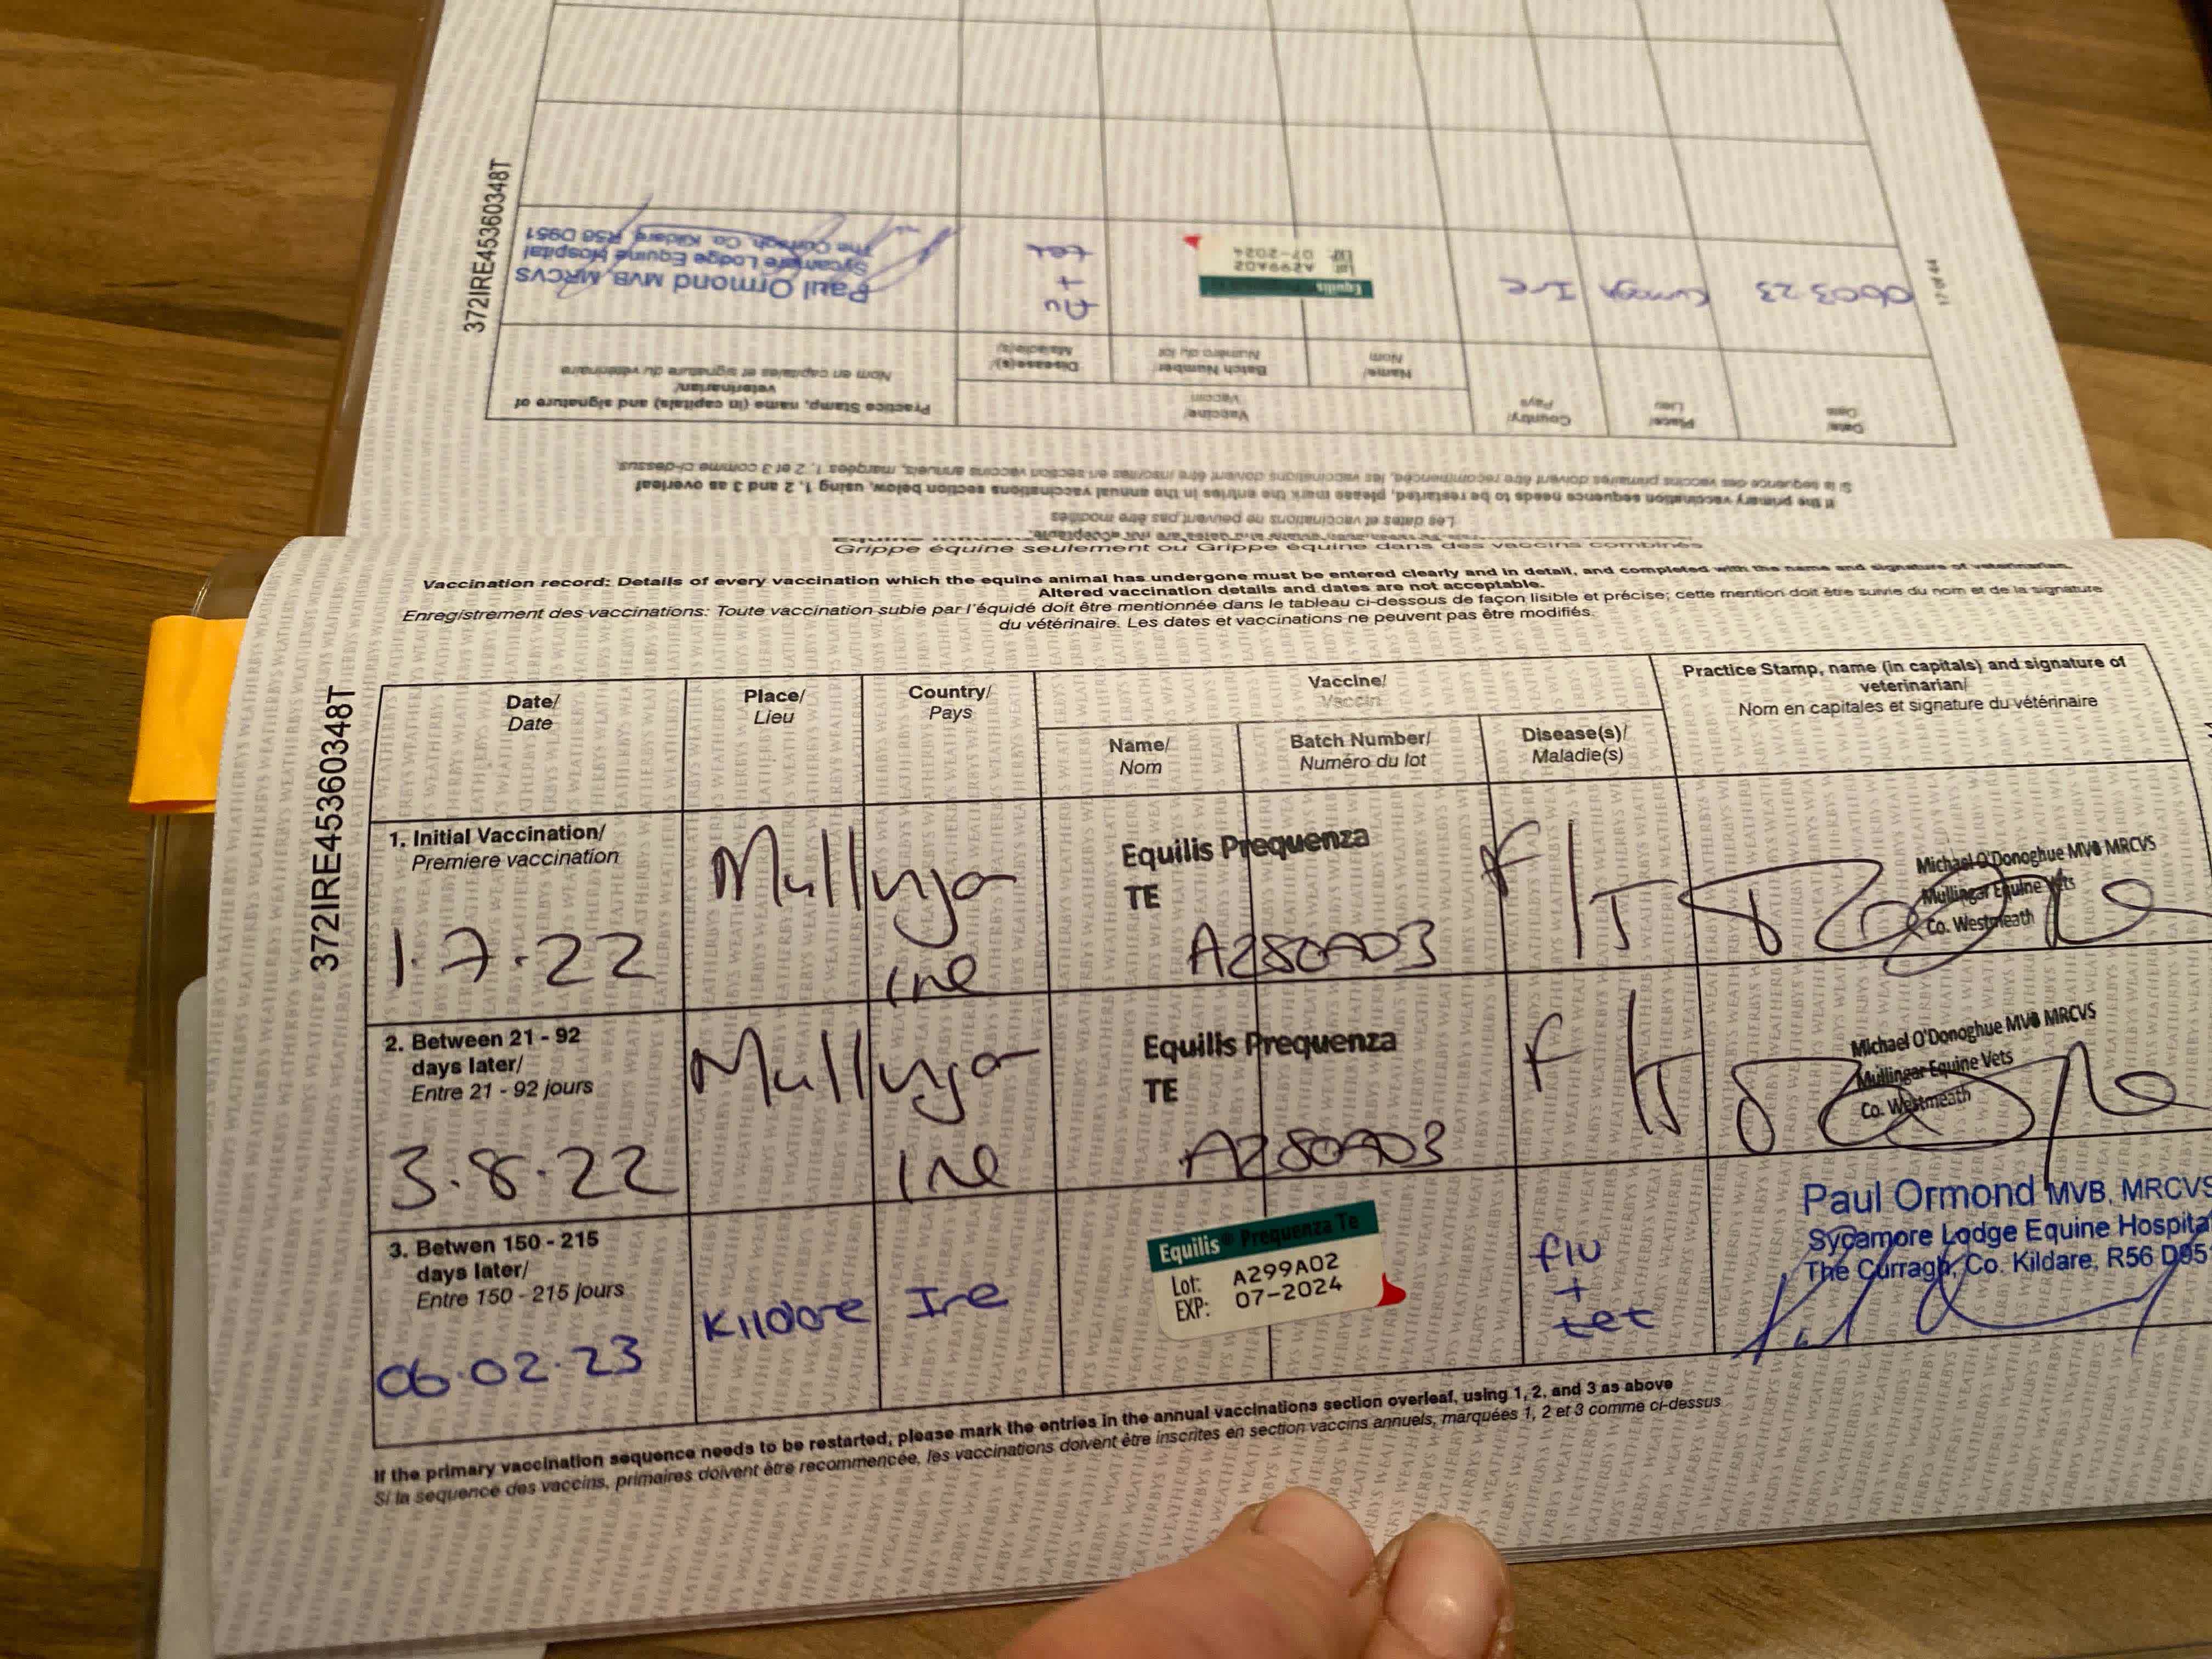 372IRE45360348T
Grippe équine seulement ou Grippe équine dans des vaccins combinés
Vaccination record: Details of every vaccination which the equine animal has undergone must be entered clearly and in detail, and completed with the name and signature of veterinarian.
Altered vaccination details and dates are not acceptable.
Enregistrement des vaccinations: Toute vaccination subie par l'équidé doit être mentionnée dans le tableau ci-dessous de façon lisible et précise; cette mention doit être suivie du nom et de la signature
du vétérinaire. Les dates et vaccinations ne peuvent pas être modifiés.
Date/
Date
Place/
Lieu
Country/
Pays
Vaccine/
Vaccin
Name/
Nom
Batch Number/
Numéro du lot
Disease(s)/
Maladie(s)
Practice Stamp, name (in capitals) and signature of
veterinarian/
Nom en capitales et signature du vétérinaire
1. Initial Vaccination/
Premiere vaccination
1.7.22
Ire
Equilis Prequenza
TE
A280A03
F/T
Michael O'Donoghue MVB MRCVS
Mullingar Equine Vets
Co. Westmeath
2. Between 21 - 92
days later/
Entre 21 - 92 jours
3.8.22
Ire
Equilis Prequenza
TE
A280A03
F/T
Michael O'Donoghue MVB MRCVS
Mullingar Equine Vets
Co. Westmeath
3. Betwen 150 - 215
days later/
Entre 150 - 215 jours
06.02.23
Kildare
Ire
Equilis® Prequenza Te
Lot: A299A02
EXP: 07-2024
flu
+
tet
Paul Ormond MVB, MRCVS
Sycamore Lodge Equine Hospital
The Curragh, Co. Kildare, R56 D95
If the primary vaccination sequence needs to be restarted, please mark the entries in the annual vaccinations section overleaf, using 1, 2, and 3 as above
Si la sequence des vaccins, primaires doivent être recommencée, les vaccinations doivent être inscrites en section vaccins annuels, marquées 1, 2 et 3 comme ci-dessus
372IRE45360348T
Les dates et vaccinations ne peuvent pas être modifiés
If the primary vaccination sequence needs to be restarted, please mark the entries in the annual vaccinations section below, using 1, 2 and 3 as overleaf
Si la sequence des vaccins primaires doivent être recommencée, les vaccinations doivent être inscrites en section vaccins annuels, marquées 1, 2 et 3 comme ci-dessus.
Date/
Date
Place/
Lieu
Country/
Pays
Vaccine/
Vaccin
Name/
Nom
Batch Number/
Numéro du lot
Disease(s)/
Maladie(s)
Practice Stamp, name (in capitals) and signature of
veterinarian/
Nom en capitales et signature du vétérinaire
06.03.23
Ire
Equilis
A299A02
07-2024
flu
+
tet
Paul Ormond MVB, MRCVS
Sycamore Lodge Equine Hospital
The Curragh, Co. Kildare, R56 D951